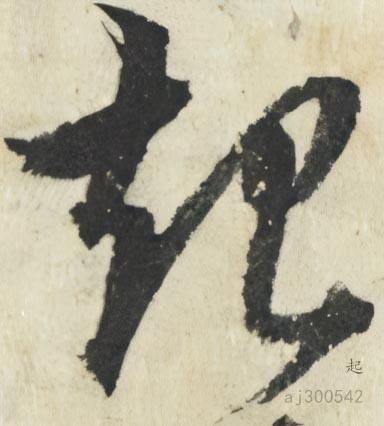 起
起
aj300542